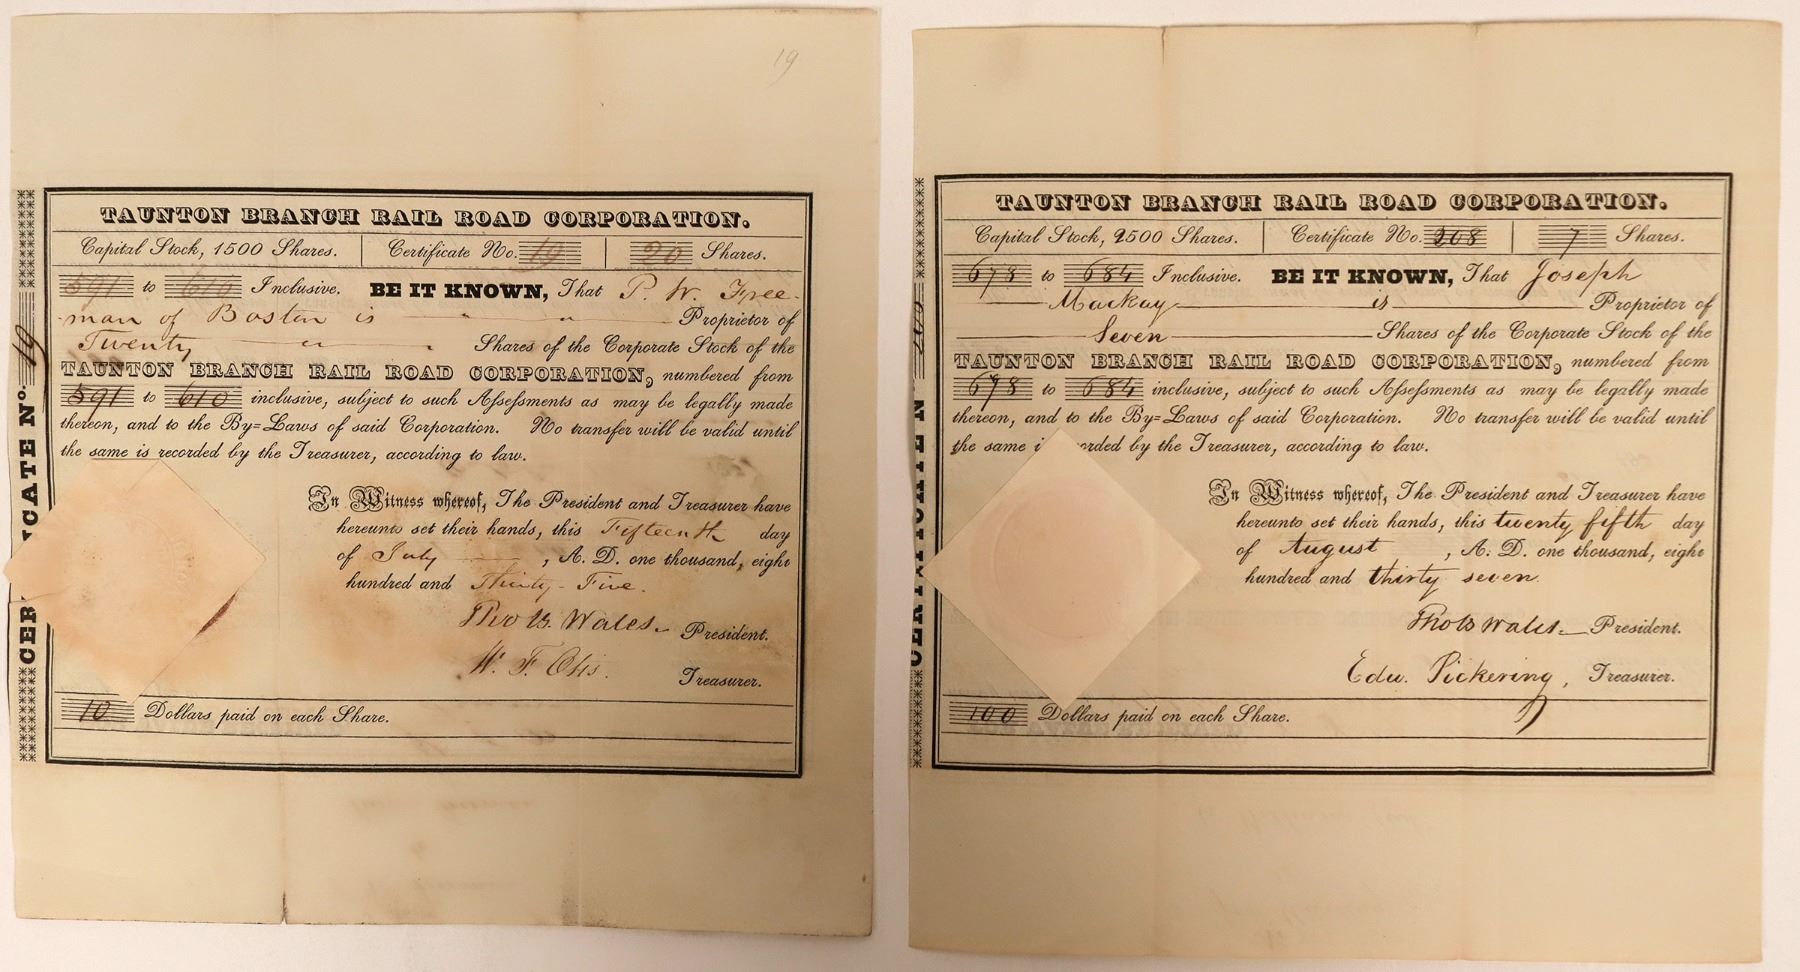 19
TAUNTON BRANCH RAIL ROAD CORPORATION.
Capital Stock, 1500 Shares. Certificate No. 19 20 Shares.
591 to 610 Inclusive. BE IT KNOWN, That P. W. Free-
man of Boston is " " Proprietor of
Twenty " " Shares of the Corporate Stock of the
TAUNTON BRANCH RAIL ROAD CORPORATION, numbered from
591 to 610 inclusive, subject to such Assessments as may be legally made
thereon, and to the By=Laws of said Corporation. No transfer will be valid until
the same is recorded by the Treasurer, according to law.
In Witness whereof, The President and Treasurer have
hereunto set their hands, this Fifteenth day
of July , A. D. one thousand, eight
hundred and Thirty-Five.
Tho B. Wales President.
W. F. Otis. Treasurer.
10 Dollars paid on each Share.
CERTIFICATE No. 19
TAUNTON BRANCH RAIL ROAD CORPORATION.
Capital Stock, 2500 Shares. Certificate No. 208 7 Shares.
678 to 684 Inclusive. BE IT KNOWN, That Joseph
Mackay is Proprietor of
Seven Shares of the Corporate Stock of the
TAUNTON BRANCH RAIL ROAD CORPORATION, numbered from
678 to 684 inclusive, subject to such Assessments as may be legally made
thereon, and to the By=Laws of said Corporation. No transfer will be valid until
the same is recorded by the Treasurer, according to law.
In Witness whereof, The President and Treasurer have
hereunto set their hands, this twenty fifth day
of August , A. D. one thousand, eight
hundred and thirty seven.
Tho B Wales President.
Edw. Pickering, Treasurer.
100 Dollars paid on each Share.
CERTIFICATE N